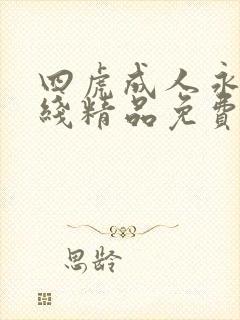 四虎成人永
线精品免费
思龄